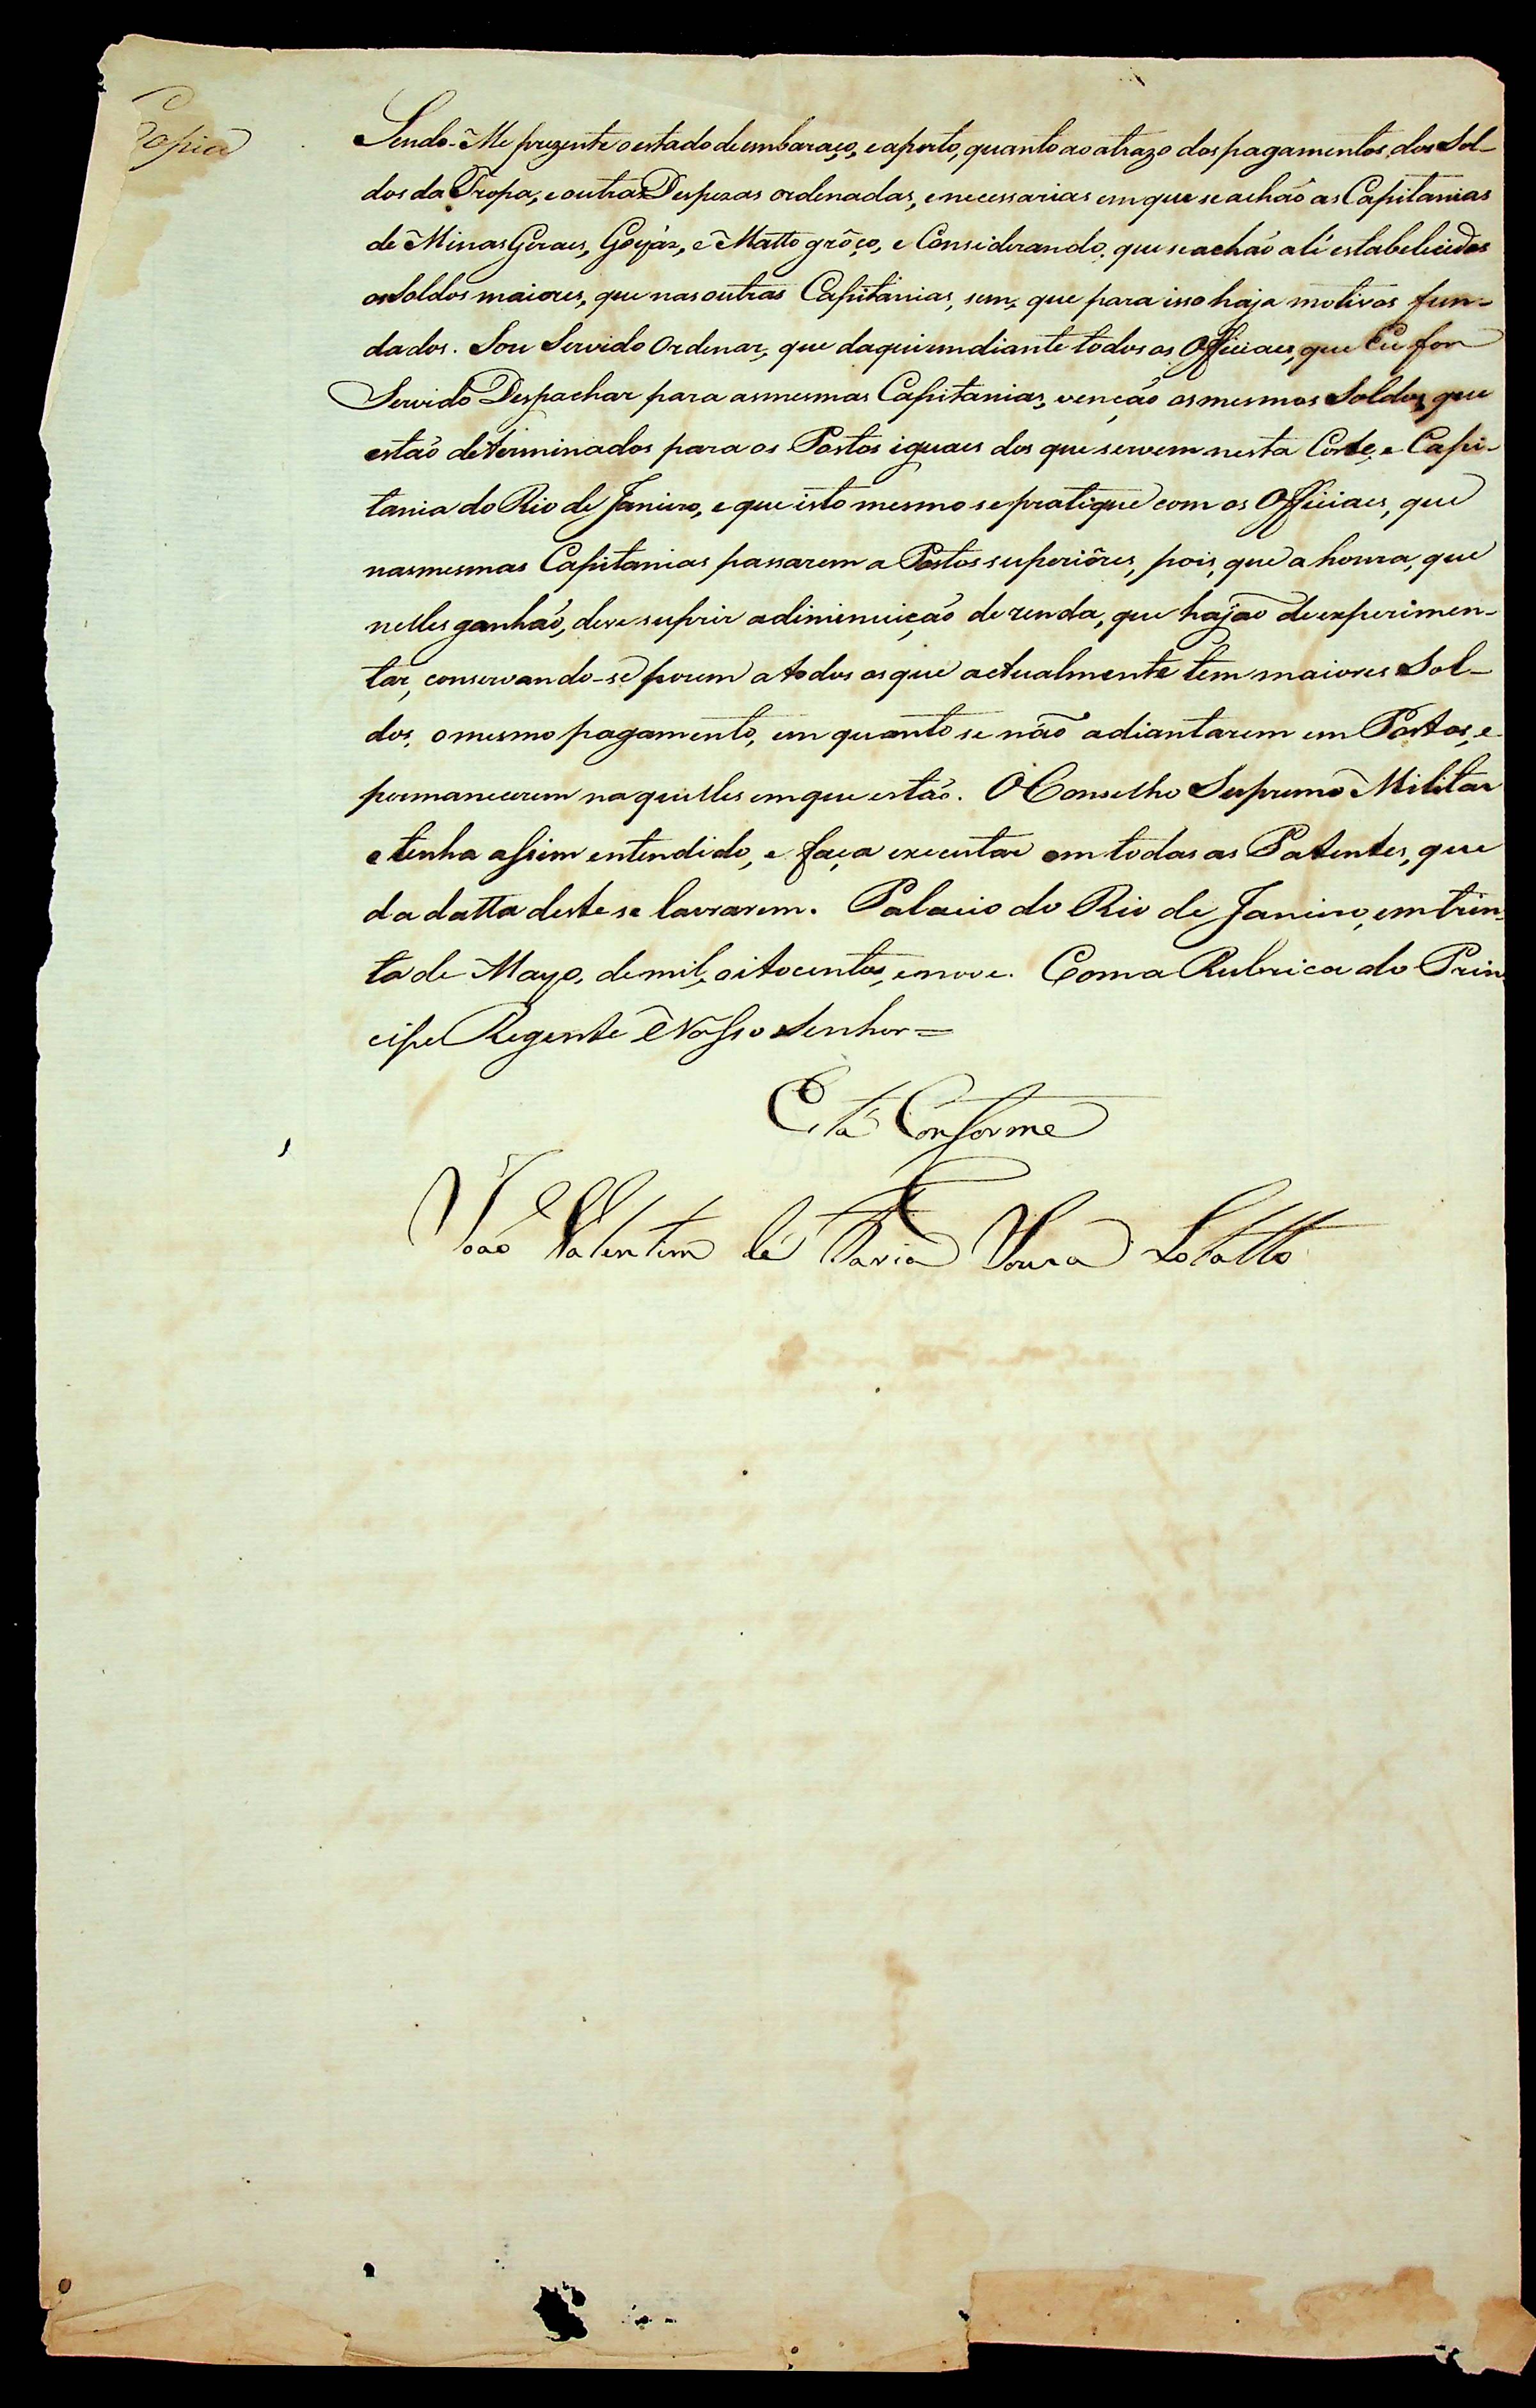 Copia
Sendo-Me prezente o estado de embaraço, e aperto, quanto ao atrazo dos pagamentos dos Sol-
dos da Tropa, e outras Despezas ordenadas, e necessarias em que se achão as Capitanias
de Minas Geraes, Goyáz, e Matto grôço, e Considerando, que se achão ali estabelicidos
os Soldos maiores, que nas outras Capitanias, sem, que para isso haja motivos fun-
dados. Sou Servido Ordenar, que daqui em diante todos os Officiaes, que Eu for
Servido Despachar para as mesmas Capitanias, venção os mesmos Soldos, que
estão determinados para os Postos iguaes dos que servem nesta Corte, e Capi-
tania do Rio de Janeiro, e que isto mesmo se pratique com os Officiaes, que
nas mesmas Capitanias passarem a Postos superiôres, pois, que a honra, que
nelles ganhão, deve suprir a diminuição de renda, que hajão de experimen-
tar, conservando-se porem a todos os que actualmente tem maiores Sol-
dos, o mesmo pagamento, em quanto se não adiantarem em Postos, e
permanecerem naquelles em que estão. O Conselho Supremo Militar
o tenha assim entendido, e faça executar em todas as Patentes, que
da datta deste se lavrarem. Palacio do Rio de Janeiro, em trin-
ta de Mayo, de mil, e oitocentos, e nove. Com a Rubrica do Prin-
cipe Regente Nosso Senhor =
Está Conforme
João Valentim de Faria Souza Lobatto